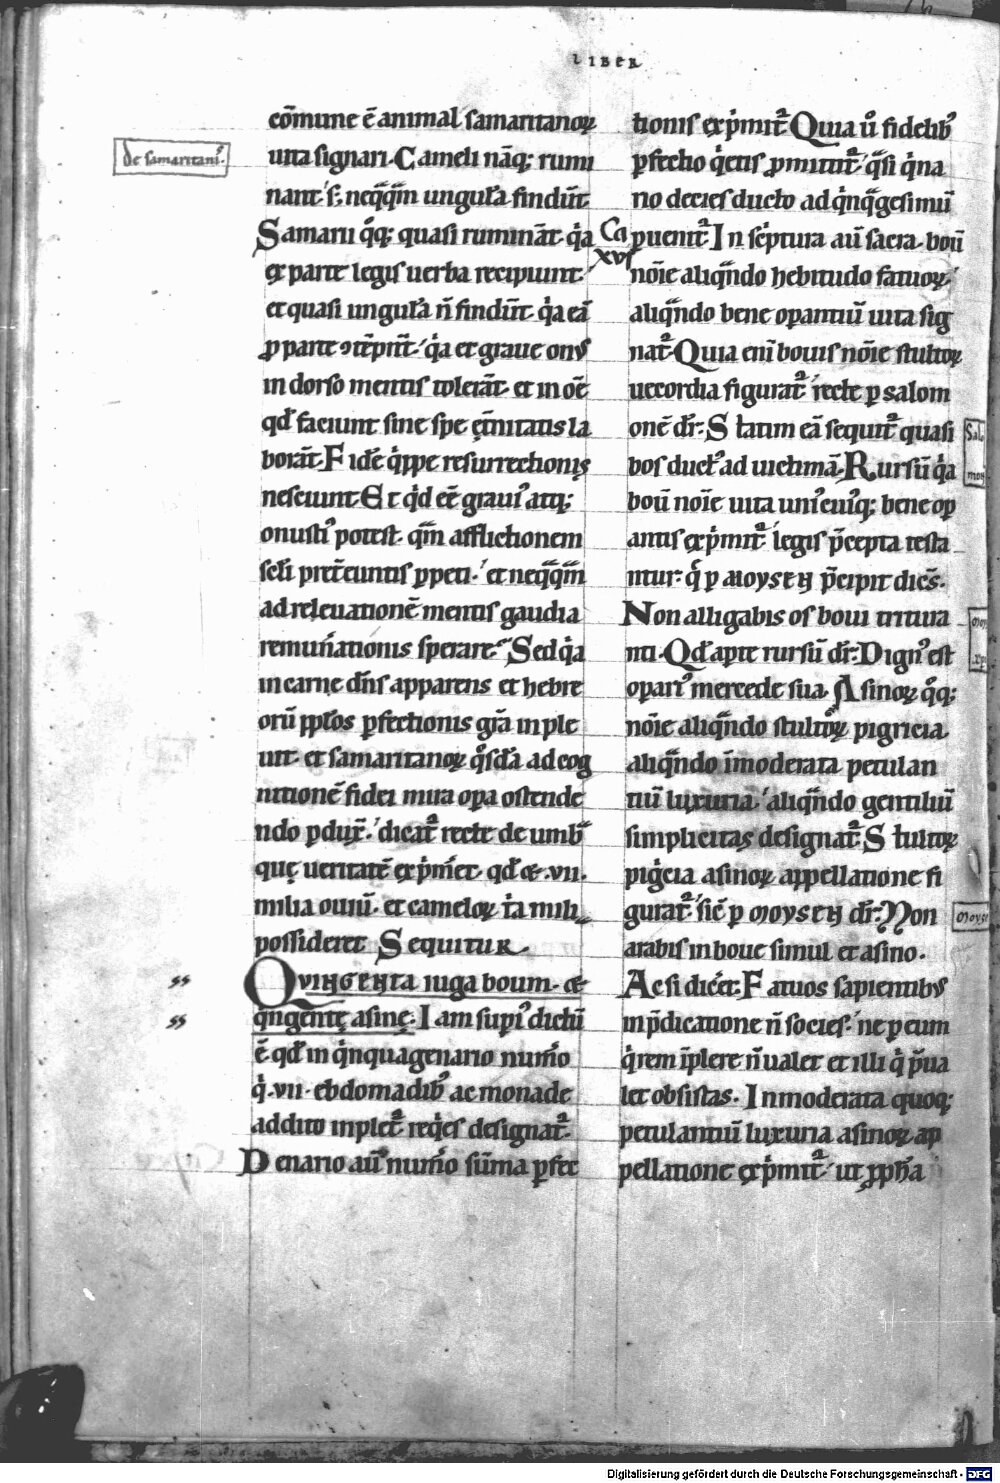 LIBER
cōmune ē animal samaritanoꝝ
uita signari. Cameli nāq; rumi
de samaritanis.
nant. s; neq̄q̄m ungulā findūt.
Samarii q̊q; quasi rumināt. q̇a
ex parte legis uerba recipiunt.
et quasi ungulā n̄ findūt. q̇a eā
ꝓ parte ↄtēpn̄t. q̇a et graue onus
in dorso mentis tolerāt. et in oē
qd̄ faciunt sine spe ęt̄nitatis la
borāt. Fidē q̇ppe resurrectionis
nesciunt. Et q̇d eē graui᷒ atq;
onusti᷒ potest. q̄m afflictionem
sc̄li pret̄euntis ꝑpeti. et neq̄q̄m
ad releuationē mentis gaudia
remun̄ationis sperare. Sed q̇a
in carne dn̄s apparens et hebre
orū pp̄los ꝑfectionis gr̄a inple
uit. et samaritanoꝝ q̊sdā ad cog
nitionē fidei mira oꝑa ostende
ndo ꝑdux̄. dicat᷑ recte de umb̄
quę ueritatē exp̄im̄et. qd̄ & .vii.
milia ouiū. et cameloꝝ t̄a mili
possideret Sequitur.
ss
Qvingenta iuga boum. &
ss
q̇ngentę asinę. Iam supi᷒ dictū
ē qd̄ in q̇nquagenario num̄o
q̇ .vii. ebdomadib᷒ ac monade
addito inplet᷑. req̇es designat᷑.
Denario aū num̄o sūma ꝑfec
tionis exp̄mit᷑. Quia ů fidelib᷒
ꝑfectio q̇etis ꝓmittit᷑. q̄si q̇na
no decies ducto ad q̇nq̄gesimū
Ca
XVI
puenit᷑. In sc̄ptura aū sacra. boū
nōie aliq̄ndo hebitudo fatuoꝝ.
aliq̄ndo bene oꝑantiū uita sig
nat᷑. Quia eni bouis nōie stultoꝝ
uecordia figurat᷑. recte ꝑ salom
onē dr̄. Statim eā sequit᷑ quasi
bos duct᷒ ad uictimā. Rursū q̇a
boū nōie uita uni᷒cui᷒q; bene oꝑ
antis exp̄mit᷑. legis p̄cepta testa
ntur. q̊ ꝑ MOYSEN p̄cipit dicēs.
Non alligabis os boui tritura
nti. Qd̄ apte rursū dr̄. Dign᷒ est
oꝑari᷒ mercede sua. Asinoꝝ q̊q;
nōie aliq̄ndo stultoꝝ pigricia.
aliq̄ndo īmoderata petulan
tiū luxuria. aliq̄ndo gentiliū
simplicitas designat᷑. Stultoꝝ
pigricia asinoꝝ appellatione fi
gurat᷑. sic̄ ꝑ MOYSEN dr̄. Non
Moysi
arabis in boue simul et asino.
Ac si dic̄et. Fatuos sapientibus
in p̄dicatione n̄ socies. ne ꝑ eum
q̇ rem īplere n̄ ualet et illi q̇ p̄ua
let obsistas. Inmoderata quoq;
petulantiū luxuria asinoꝝ ap
pellatione exp̄mit᷑. ut ꝓph̄a
Digitalisierung gefördert durch die Deutsche Forschungsgemeinschaft - DFG